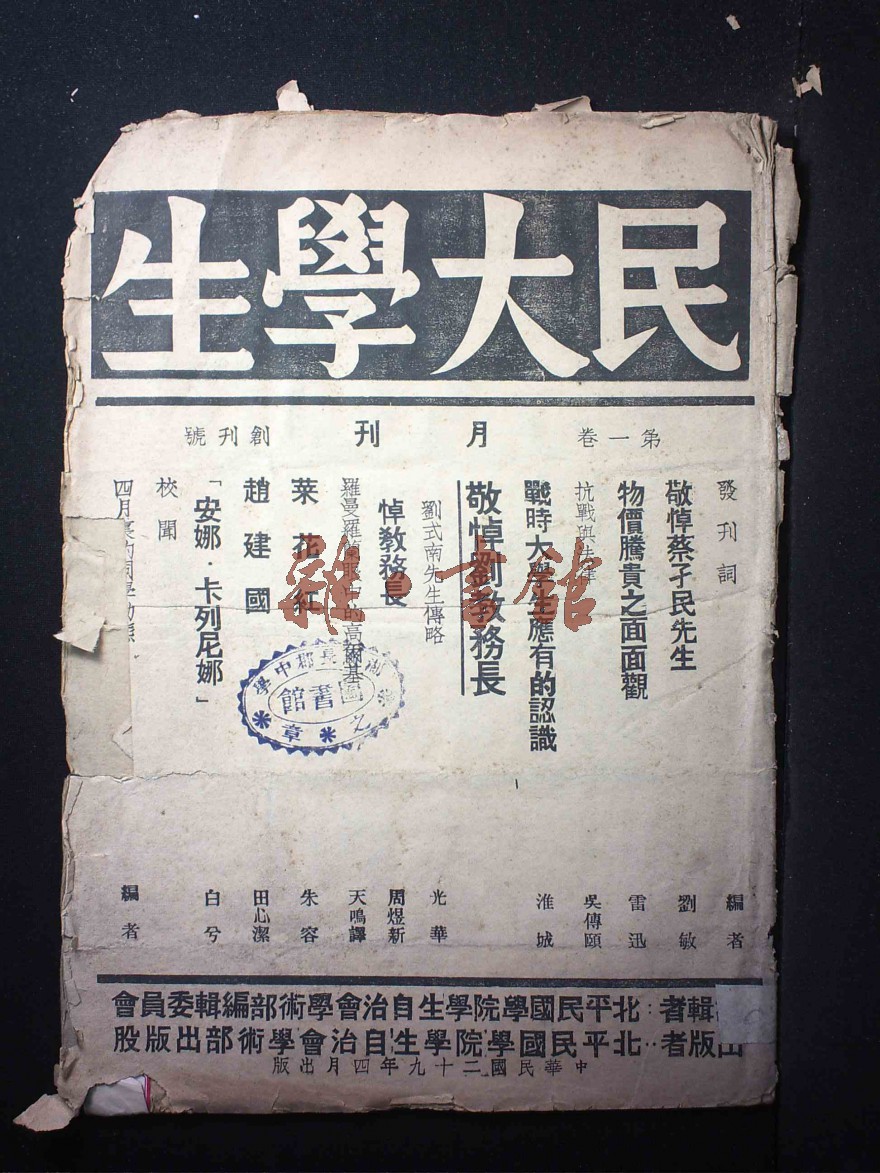 民大學生
第一卷 月刊 創刊號
發刊詞 編者
敬悼蔡孑民先生 劉敏
物價騰貴之面面觀 雷迅
抗戰與法律 吳傳頤
戰時大學生應有的認識 淮城
敬悼劉教務長
劉式南先生傳略 光華
悼教務長 周煜新
羅曼羅蘭眼中的高爾基 天鳴譯
菜花紅 朱容
趙建國 田心潔
「安娜・卡列尼娜」 白兮
校聞
四月裏的 編者
輯者：北平民國學院學生自治會學術部編輯委員會
出版者：北平民國學院學生自治會學術部出版股
中華民國二十九年四月出版
雜・書館
長郡中學
圖書館
之章